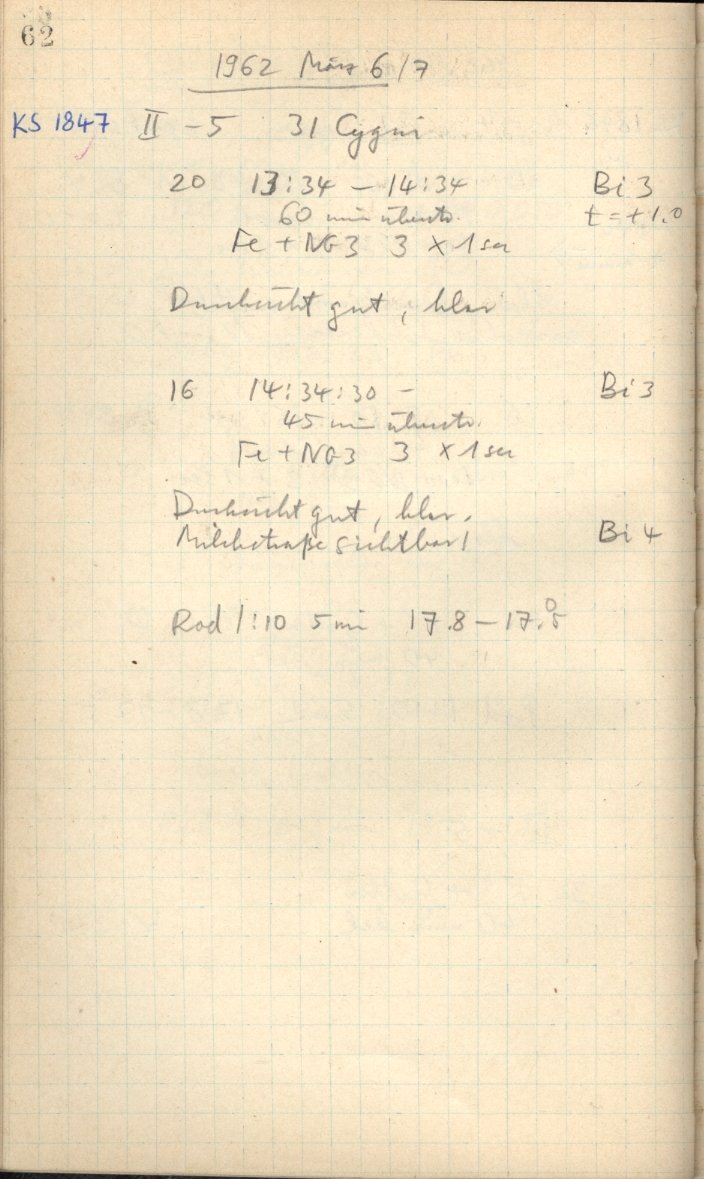 62
1962 März 6/7
KS 1847 II -5 31 Cygni
20 13:34 – 14:34 Bi 3
60 min überstr. t = +1.0
Fe + NG3 3 x 1 sec
Durchsicht gut, klar
16 14:34:30 – Bi 3
45 min überstr.
Fe + NG3 3 x 1 sec
Durchsicht gut, klar.
Milchstraße sichtbar! Bi 4
Rod 1:10 5 min 17.8 – 17.